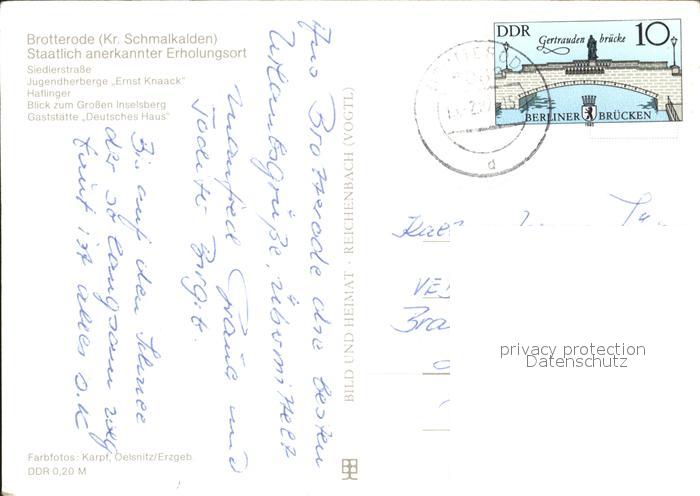 Brotterode (Kr. Schmalkalden)
Staatlich anerkannter Erholungsort
Siedlerstraße
Jugendherberge „Ernst Knaack"
Haflinger
Blick zum Großen Inselsberg
Gaststätte „Deutsches Haus"
Aus Brotterode die besten
Urlaubsgrüße, übermittelt
Manfred und
Tochter Birgit.
Bis auf den Schnee
der so langsam weg
taut ist alles o.K
Farbfotos: Karpf, Oelsnitz/Erzgeb.
DDR 0,20 M
BILD UND HEIMAT · REICHENBACH (VOGTL)
DDR
Gertrauden brücke
10
BERLINER BRÜCKEN
VE
Bra
privacy protection
Datenschutz